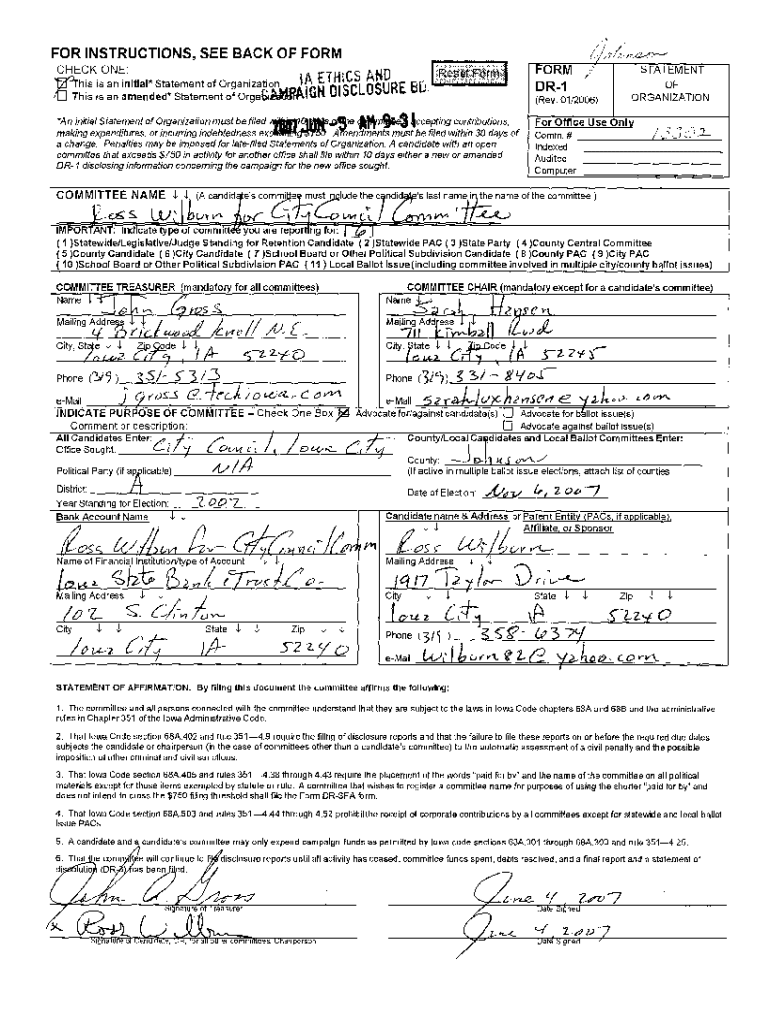 Johnson
FOR INSTRUCTIONS, SEE BACK OF FORM
CHECK ONE:
This is an initial* Statement of Organization
This is an amended* Statement of Organization
IA ETHICS AND
CAMPAIGN DISCLOSURE BD.
2007 JUN -5 AM 9:31
Reset Form
FORM
DR-1
(Rev. 01/2006)
STATEMENT
OF
ORGANIZATION
*An initial Statement of Organization must be filed within 10 days of the committee accepting contributions,
making expenditures, or incurring indebtedness exceeding $750. Amendments must be filed within 30 days of
a change. Penalties may be imposed for late-filed Statements of Organization. A candidate with an open
committee that exceeds $750 in activity for another office shall file within 10 days either a new or amended
DR-1 disclosing information concerning the campaign for the new office sought.
For Office Use Only
Comm. #
Indexed
Audited
Computer
COMMITTEE NAME ↓ ↓ (A candidate's committee must include the candidate's last name in the name of the committee)
Ross Wilburn for City Council Committee
IMPORTANT: Indicate type of committee you are reporting for: 6
(1)Statewide/Legislative/Judge Standing for Retention Candidate (2)Statewide PAC (3)State Party (4)County Central Committee
(5)County Candidate (6)City Candidate (7)School Board or Other Political Subdivision Candidate (8)County PAC (9)City PAC
(10)School Board or Other Political Subdivision PAC (11) Local Ballot Issue(including committee involved in multiple city/county ballot issues)
COMMITTEE TREASURER (mandatory for all committees)
Name ↓ John Gross
Mailing Address ↓ ↓
4 Brickwood Knoll N.E.
City, State ↓ ↓ Zip Code ↓ ↓
Iowa City, IA 52240
Phone (319) 351-5313
e-Mail jgross@techiowa.com
COMMITTEE CHAIR (mandatory except for a candidate's committee)
Name ↓ Sarah Hansen
Mailing Address ↓ ↓
711 Kimball Road
City, State ↓ ↓ Zip Code ↓ ↓
Iowa City, IA 52245
Phone (319) 331-8405
e-Mail sarahluxhansen@yahoo.com
INDICATE PURPOSE OF COMMITTEE – Check One Box Advocate for/against candidate(s) Advocate for ballot issue(s)
Comment or description: Advocate against ballot issue(s)
All Candidates Enter:
Office Sought: City Council, Iowa City
Political Party (if applicable) N/A
District: A
Year Standing for Election: 2007
County/Local Candidates and Local Ballot Committees Enter:
County: Johnson
(If active in multiple ballot issue elections, attach list of counties
Date of Election: Nov 6, 2007
Bank Account Name ↓ ↓
Ross Wilburn for City Council Comm
Name of Financial Institution/type of Account ↓ ↓
Iowa State Bank & Trust Co.
Mailing Address ↓ ↓
102 S. Clinton
City ↓ ↓ State ↓ ↓ Zip ↓ ↓
Iowa City IA 52240
Candidate name & Address or Parent Entity (PACs, if applicable),
↓ ↓ Affiliate, or Sponsor
Ross Wilburn
Mailing Address ↓ ↓
1917 Taylor Drive
City ↓ ↓ State ↓ ↓ Zip ↓ ↓
Iowa City IA 52240
Phone (319) 358-6374
e-Mail wilburn82@yahoo.com
STATEMENT OF AFFIRMATION. By filing this document the committee affirms the following:
1. The committee and all persons connected with the committee understand that they are subject to the laws in Iowa Code chapters 68A and 68B and the administrative
rules in Chapter 351 of the Iowa Administrative Code.
2. That Iowa Code section 68A.402 and rule 351—4.9 require the filing of disclosure reports and that the failure to file these reports on or before the required due dates
subjects the candidate or chairperson (in the case of committees other than a candidate's committee) to the automatic assessment of a civil penalty and the possible
imposition of other criminal and civil sanctions.
3. That Iowa Code section 68A.405 and rules 351—4.38 through 4.43 require the placement of the words "paid for by" and the name of the committee on all political
materials except for those items exempted by statute or rule. A committee that wishes to register a committee name for purposes of using the shorter "paid for by" and
does not intend to cross the $750 filing threshold shall file the Form DR-SFA form.
4. That Iowa Code section 68A.503 and rules 351—4.44 through 4.52 prohibit the receipt of corporate contributions by all committees except for statewide and local ballot
issue PACs.
5. A candidate and a candidate's committee may only expend campaign funds as permitted by Iowa code sections 68A.301 through 68A.303 and rule 351—4.25.
6. That the committee will continue to file disclosure reports until all activity has ceased, committee funds spent, debts resolved, and a final report and a statement of
dissolution (DR-3) has been filed.
John A Gross June 4, 2007
Signature of Treasurer Date Signed
x Ross Wilburn June 4, 2007
Signature of Candidate, OR, for all other committees, Chairperson Date Signed